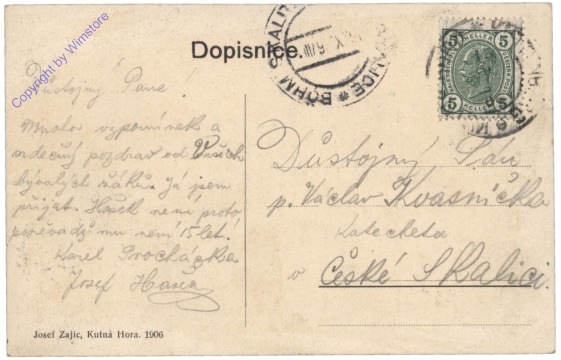 Dopisnice.
Důstojný Pane!
Mnoho vzpomínek a
srdečný pozdrav od Vašich
bývalých žáků. Já jsem
přijat. Hašek není proto,
poněvadž mu není 15 let.
Karel Procházka
Josef Hašek
Josef Zajíc, Kutná Hora. 1906
5 HELLER 5
5 HELLER 5
BÖHM. SKALIC
Důstojný Pán
p. Václav Kvasnička
Katecheta
v České Skalici.
Copyright by Wimstore